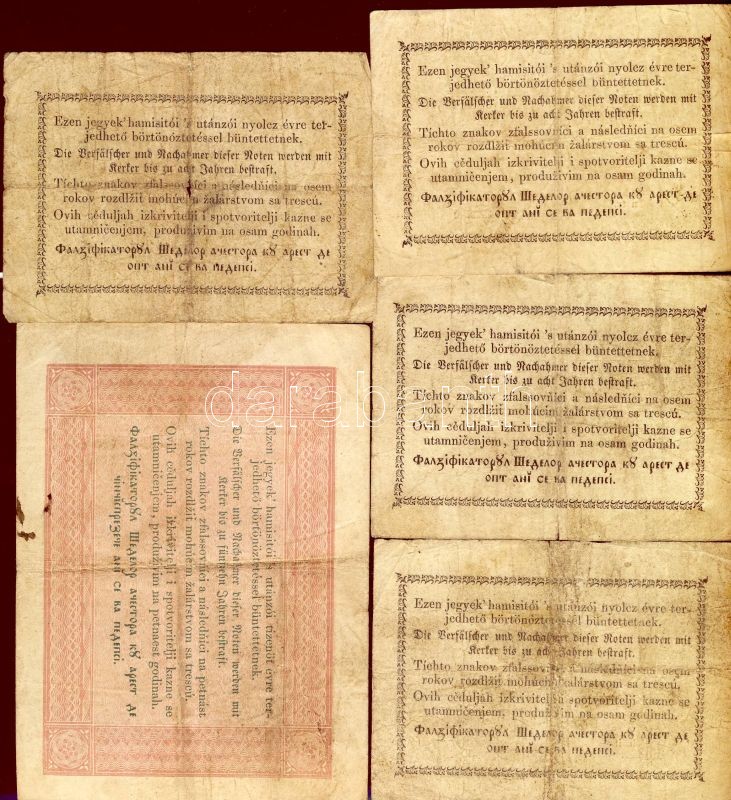 Ezen jegyek' hamisitói 's utánzói nyolcz évre ter-
jedhető börtönöztetéssel büntettetnek.
Die Verfälscher und Nachahmer dieser Noten werden mit
Kerker bis zu acht Jahren bestraft.
Tíchto znakov zfalssovníci a následňíci na osem
rokov rozdlžit mohúcim žalárstvom sa trescú.
Ovih cěduljah izkrivitelji i spotvoritelji kazne se
utamničenjem, produživim na osam godinah.
Фалзіфікаторꙋл Шеделор ачестора кꙋ арест де
опт анї се ва педепсі.
Ezen jegyek' hamisitói 's utánzói nyolcz évre ter-
jedhető börtönöztetéssel büntettetnek.
Die Verfälscher und Nachahmer dieser Noten werden mit
Kerker bis zu acht Jahren bestraft.
Tíchto znakov zfalssovníci a následňíci na osem
rokov rozdlžit mohúcim žalárstvom sa trescú.
Ovih cěduljah izkrivitelji i spotvoritelji kazne se
utamničenjem, produživim na osam godinah.
Фалзіфікаторꙋл Шеделор ачестора кꙋ арест де
опт анї се ва педепсі.
Ezen jegyek' hamisitói 's utánzói tizenöt évre ter-
jedhető börtönöztetéssel büntettetnek.
Die Verfälscher und Nachahmer dieser Noten werden mit
Kerker bis zu fünfzehn Jahren bestraft.
Tíchto znakov zfalssovníci a následňíci na petnást
rokov rozdlžit mohúcim žalárstvom sa trescú.
Ovih cěduljah izkrivitelji i spotvoritelji kazne se
utamničenjem, produživim na petnaest godinah.
Фалзіфікаторꙋл Шеделор ачестора кꙋ арест де
чінчіспрезече анї се ва педепсі.
Ezen jegyek' hamisitói 's utánzói nyolcz évre ter-
jedhető börtönöztetéssel büntettetnek.
Die Verfälscher und Nachahmer dieser Noten werden mit
Kerker bis zu acht Jahren bestraft.
Tíchto znakov zfalssovníci a následňíci na osem
rokov rozdlžit mohúcim žalárstvom sa trescú.
Ovih cěduljah izkrivitelji i spotvoritelji kazne se
utamničenjem, produživim na osam godinah.
Фалзіфікаторꙋл Шеделор ачестора кꙋ арест де
опт анї се ва педепсі.
Ezen jegyek' hamisitói 's utánzói nyolcz évre ter-
jedhető börtönöztetéssel büntettetnek.
Die Verfälscher und Nachahmer dieser Noten werden mit
Kerker bis zu acht Jahren bestraft.
Tíchto znakov zfalssovníci a následňíci na osem
rokov rozdlžit mohúcim žalárstvom sa trescú.
Ovih cěduljah izkrivitelji i spotvoritelji kazne se
utamničenjem, produživim na osam godinah.
Фалзіфікаторꙋл Шеделор ачестора кꙋ арест де
опт анї се ва педепсі.